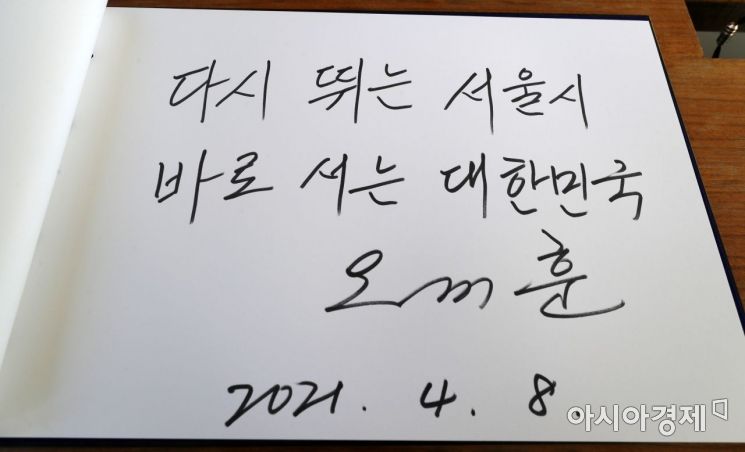 다시 뛰는 서울시
바로 서는 대한민국
오세훈
2021. 4. 8.
아시아경제